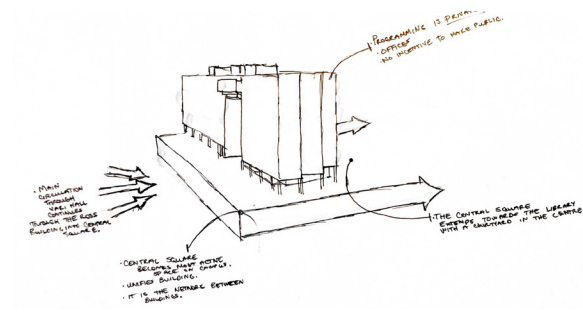 · PROGRAMMING IS PRIVATE
· OFFICES
· NO INCENTIVE TO MAKE PUBLIC.
· MAIN
CIRCULATION
THROUGH
VARI HALL
CONTINUES
THROUGH THE ROSS
BUILDING INTO CENTRAL
SQUARE.
· CENTRAL SQUARE
BECOMES MOST ACTIVE
SPACE ON CAMPUS.
· UNIFIES BUILDING.
· IT IS THE NETWORK BETWEEN
BUILDINGS.
· THE CENTRAL SQUARE
EXTENDS TOWARDS THE LIBRARY
WITH A COURTYARD IN THE CENTRE